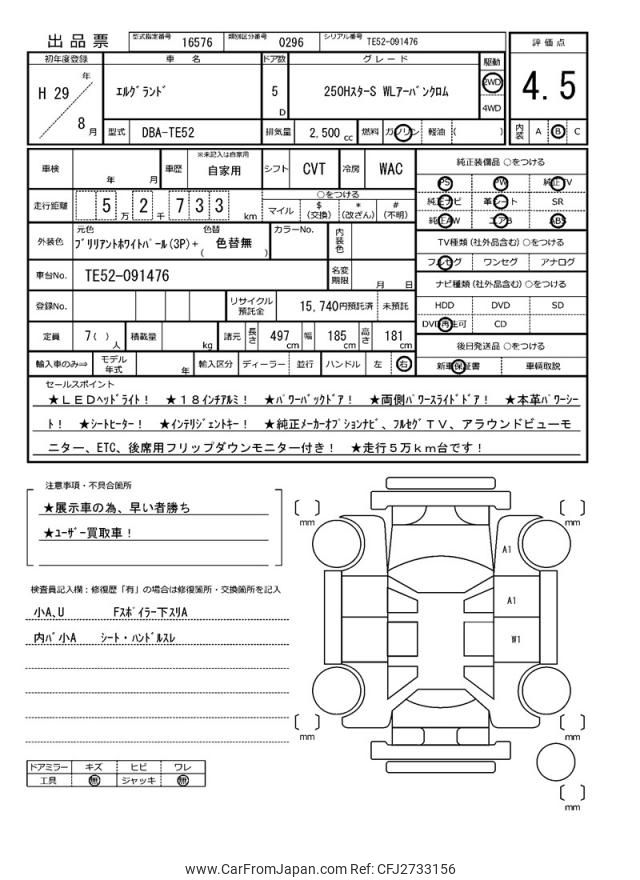 出品票 型式指定番号 16576 類別区分番号 0296 シリアル番号 TE52-091476
評価点
4.5
内装 A B C
初年度登録 車名 ドア数 グレード 駆動
H 29 年 8 月
エルグランド 5 D 250HスターS WLアーバンクロム 2WD 4WD
型式 DBA-TE52 排気量 2,500 cc 燃料 ガソリン 軽油 ( )
車検 年 月 車歴 ※未記入は自家用 自家用 シフト CVT 冷房 WAC
走行距離 5 万 2 千 7 3 3 km ○をつける
マイル $ (交換) * (改ざん) # (不明)
外装色 元色 ブリリアントホワイトパール(3P)+ 色替 ( 色替無 ) カラーNo. 内装色
車台No. TE52-091476 名変期限 月 日
登録No. リサイクル預託金 15,740円預託済 未預託
定員 7( ) 人 積載量 kg 諸元 長さ 497 cm 幅 185 cm 高さ 181 cm
輸入車のみ⇒ モデル年式 年 輸入区分 ディーラー 並行 ハンドル 左 右
純正装備品 ○をつける
PS PW 純正TV
純正ナビ 革シート SR
純正AW エアB ABS
TV種類(社外品含む) ○をつける
フルセグ ワンセグ アナログ
ナビ種類(社外品含む) ○をつける
HDD DVD SD
DVD再生可 CD
後日発送品 ○をつける
新車保証書 車輌取説
セールスポイント
★LEDヘッドライト! ★18インチアルミ! ★パワーバックドア! ★両側パワースライドドア! ★本革パワーシー
ト! ★シートヒーター! ★インテリジェントキー! ★純正メーカーオプションナビ、フルセグTV、アラウンドビューモ
ニター、ETC、後席用フリップダウンモニター付き! ★走行5万km台です!
注意事項・不具合箇所
★展示車の為、早い者勝ち
★ユーザー買取車!
検査員記入欄:修復歴「有」の場合は修復箇所・交換箇所を記入
小A、U Fスポイラー下スリA
内バ小A シート・ハンドルスレ
ドアミラー キズ ヒビ ワレ
工具 無 ジャッキ 無
mm
mm
A1
A1
W1
mm
mm
mm
www.CarFromJapan.com Ref: CFJ2733156